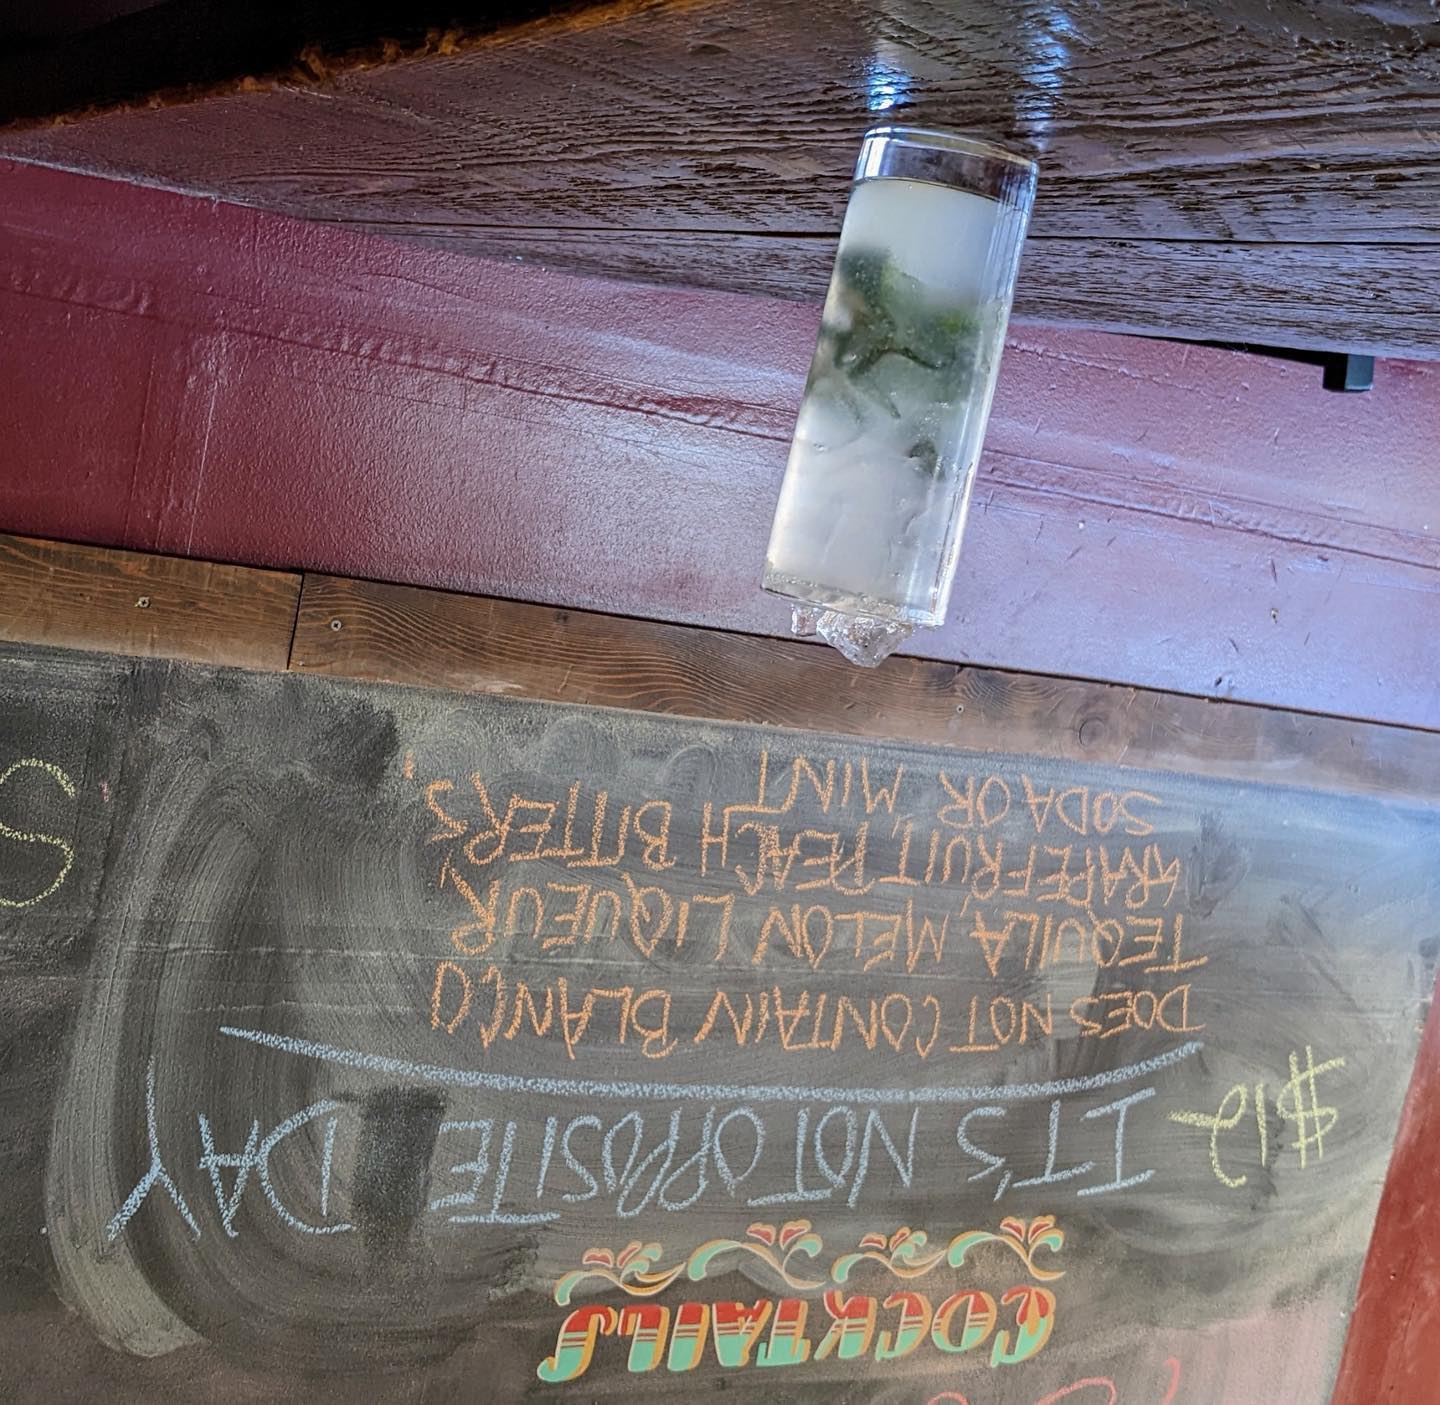 COCKTAILS
$12 IT'S NOT OPPOSITE DAY
DOES NOT CONTAIN BLANCO
TEQUILA, MELON LIQUEUR,
GRAPEFRUIT, PEACH BITTERS,
SODA OR MINT
S